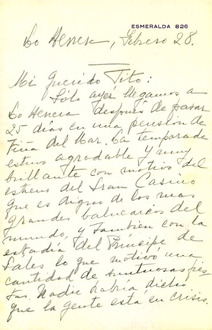 ESMERALDA 826
Lo Herrera, Febrero 28.
Mi Querido Tito:
Sólo ayer llegamos a
Lo Herrera después de pasar
25 días en una pensión de
Viña del Mar. La temporada
estuvo agradable y muy
brillante con motivo del
estreno del Gran Casino
que es digno de los mas
grandes balnearios del
mundo, y tambien con la
estadia del Principe de
Gales lo que motivo una
cantidad de suntuosas fies
tas. Nadie habría dicho
que la gente esta en crisis.